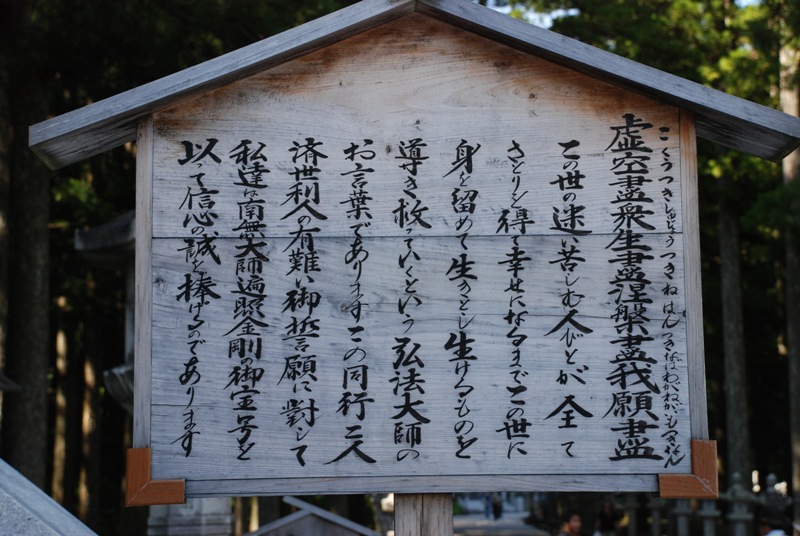 こくうつきしゅじょうつきねはんつきなばわがねがいもつきなん
虚空盡衆生盡涅槃盡我願盡
この世の迷い苦しむ人びとが全て
さとりを得て幸せになるまでこの世に
身を留めて生かし生けるものを
導き救っていくという弘法大師の
お言葉であります この同行二人
済世利人の有難い御誓願に對して
私達は南無大師遍照金剛の御宝号を
以て信心の誠を捧げるのであります